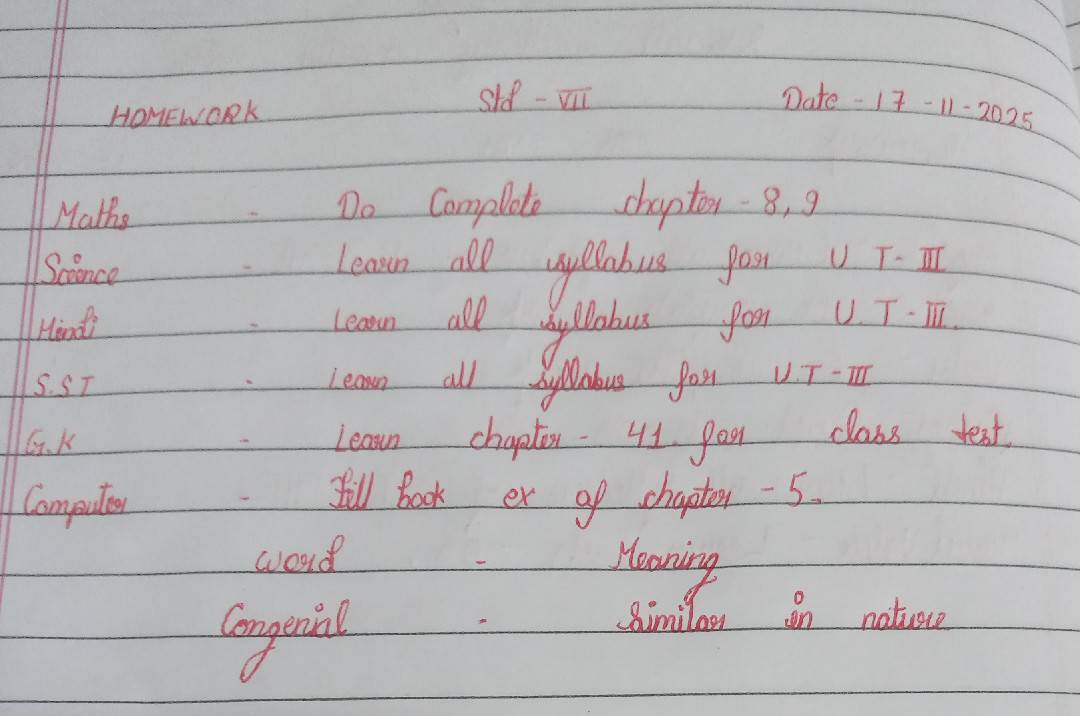 HOMEWORK Std - VII Date - 17 - 11 - 2025
Maths - Do Complete chapter - 8, 9
Science - Learn all syllabus for U T - III
Hindi - Learn all syllabus for U. T - III.
S.ST - Learn all syllabus for U.T - III
G.K - Learn chapter - 41. for class test.
Computer - Fill book ex of chapter - 5.
Word - Meaning
Congenial - Similar in nature